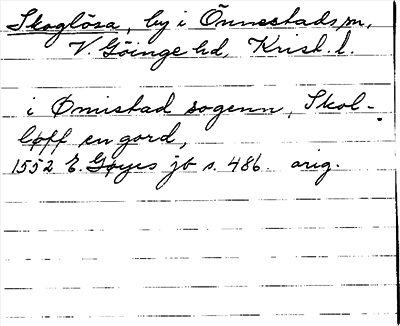 Skoglösa, by i Önnestads sn,
V. Göinge hd, Krist. l.
i Ømistad sogenn, Skol-
løff en gord,
1552 E. Gøyes jb s. 486 orig.